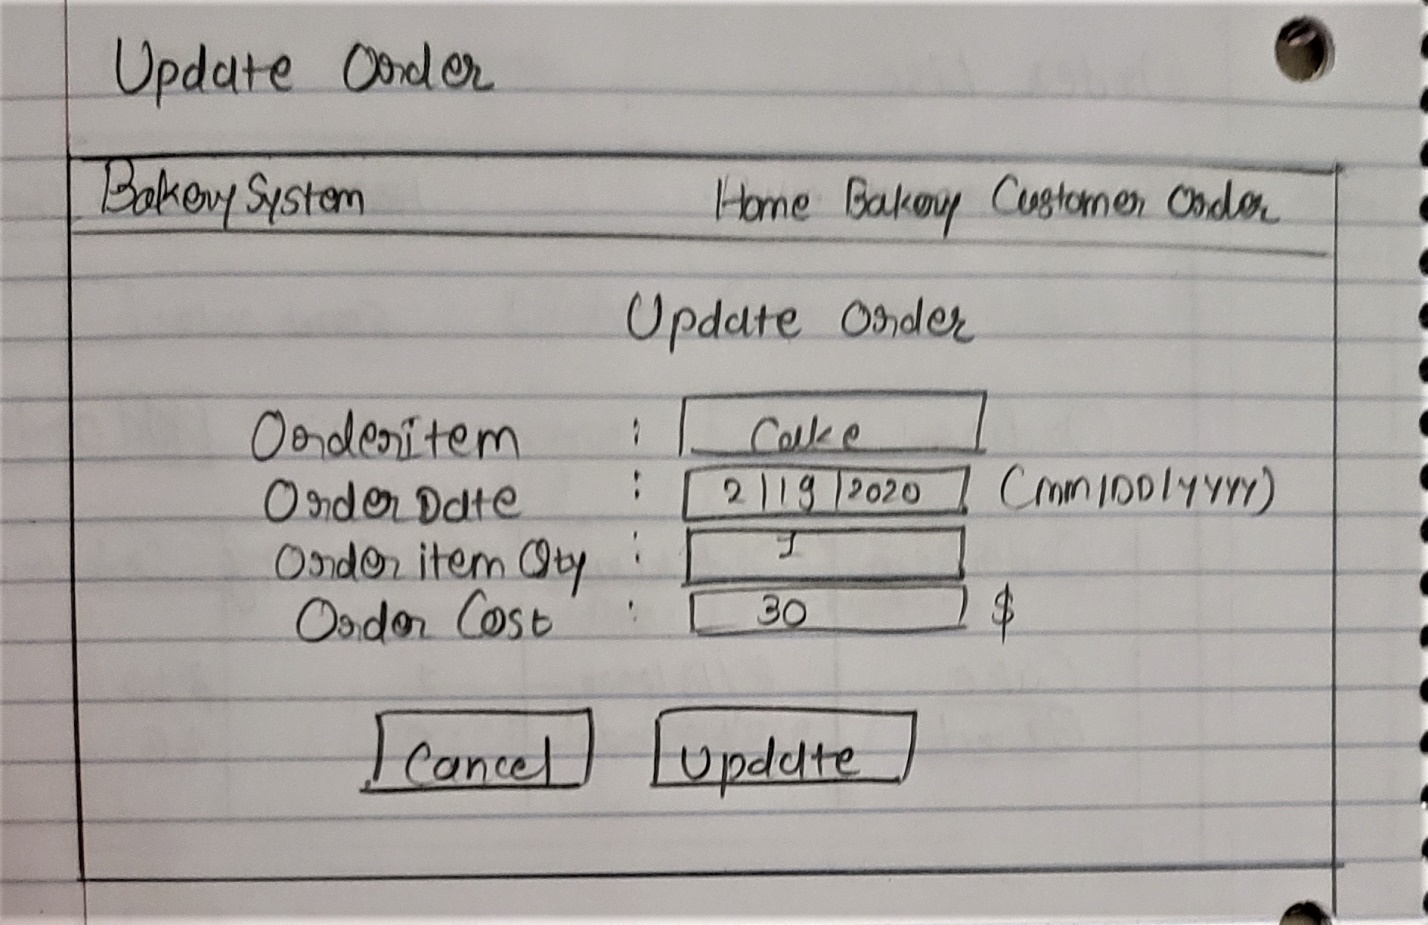 Update Order
Bakery System Home Bakery Customer Order
Update Order
Orderitem : Cake
Order Date : 2|19|2020 (mm|DD|YYYY)
Order item Qty : 1
Order Cost : 30 $
Cancel Update